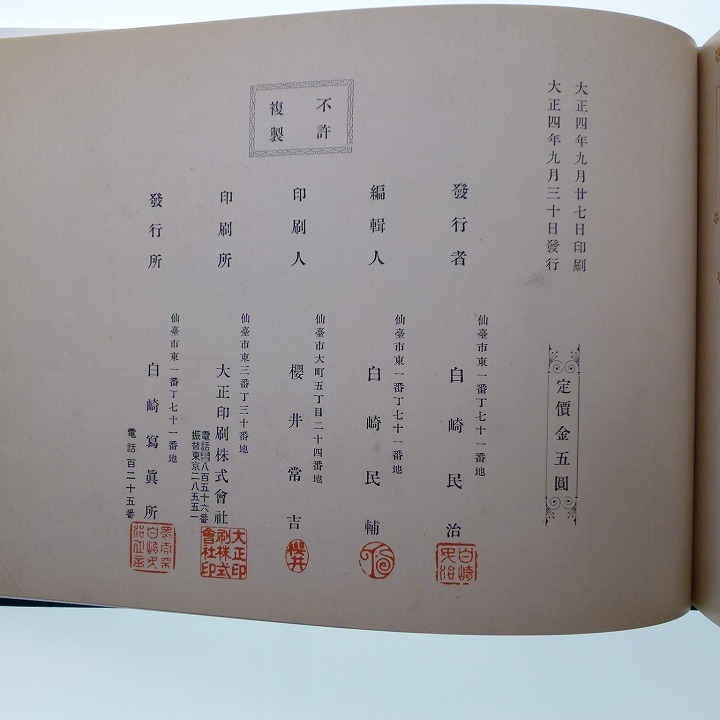 大正四年九月廿七日印刷
大正四年九月三十日發行
定價金五圓
不許
複製
發行者
仙臺市東一番丁七十一番地
白崎民治
編輯人
仙臺市東一番丁七十一番地
白崎民輔
印刷人
仙臺市大町五丁目二十四番地
櫻井常吉
櫻井
印刷所
仙臺市東三番丁三十番地
大正印刷株式會社
振替東京二八五五一
大正印
刷株式
會社印
發行所
仙臺市東一番丁七十一番地
白崎寫眞所
電話百二十五番